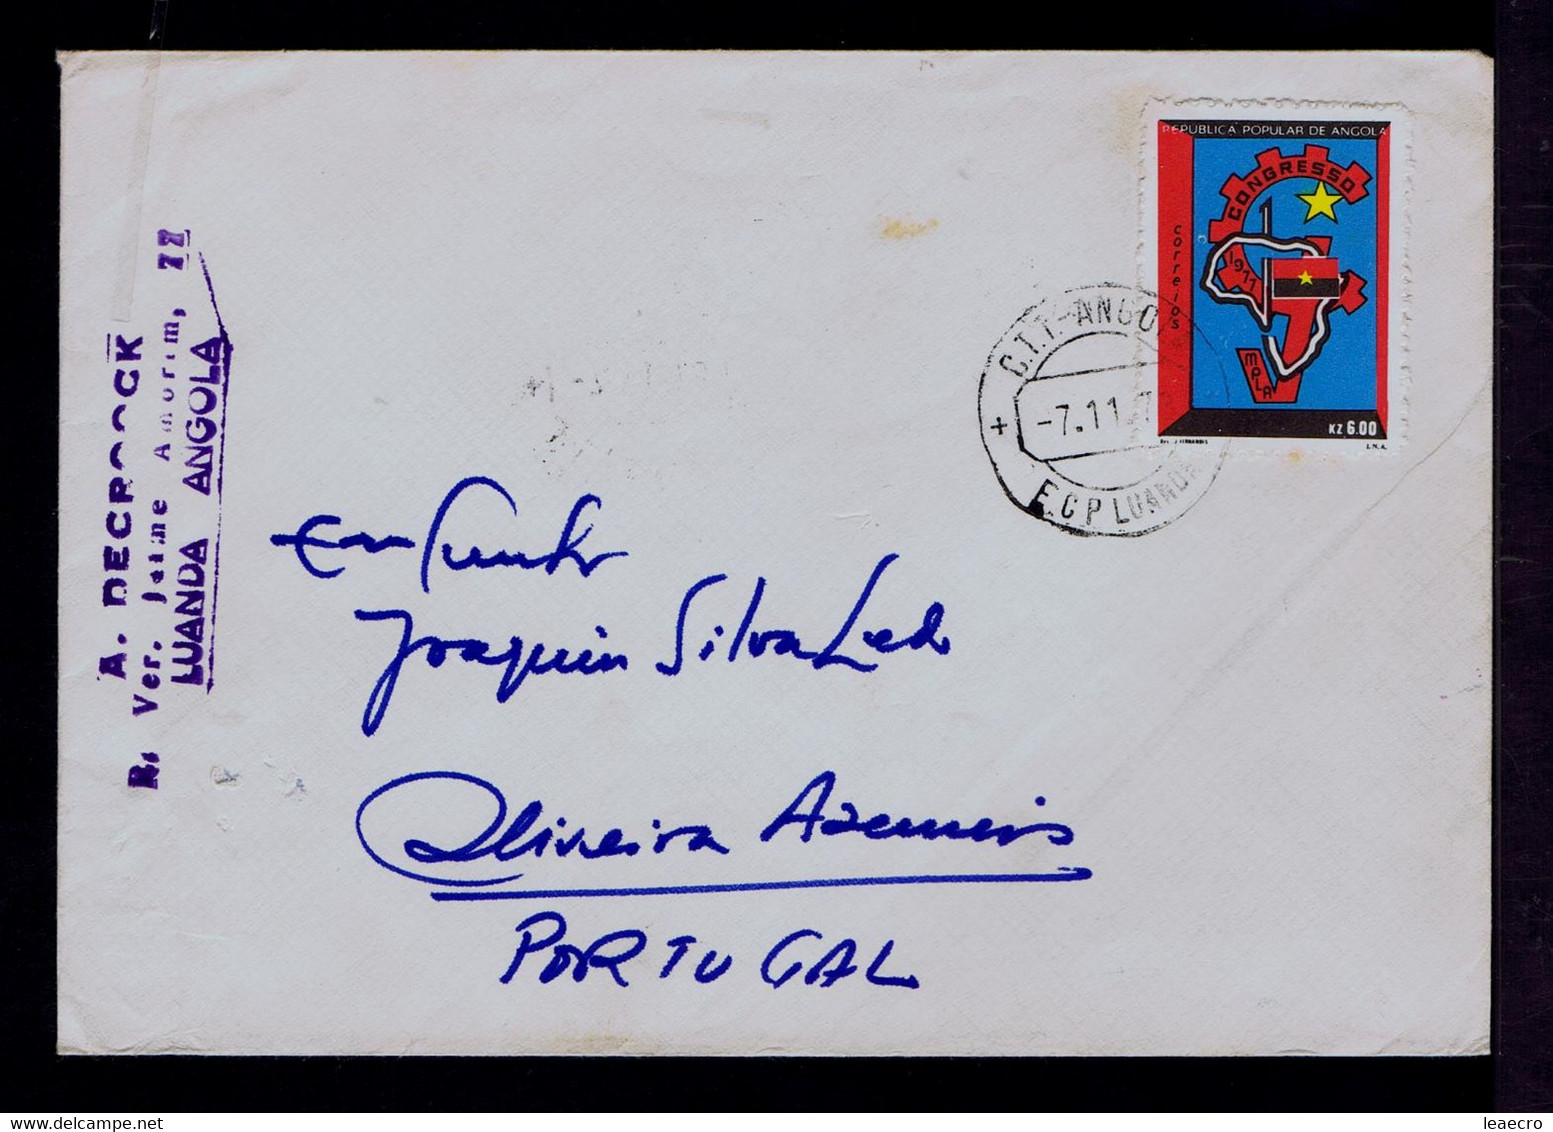 A. DECROOCK
R. Ver. Jaime Amorim, 77
LUANDA ANGOLA
REPUBLICA POPULAR DE ANGOLA
CONGRESSO
correios
1977
MPLA
KZ 6.00
I.N.A.
C.T.T.-ANGOLA
-7.11.7
E.C.P LUANDA
Joaquim Silva
Oliveira Azemeis
PORTUGAL
leaecro